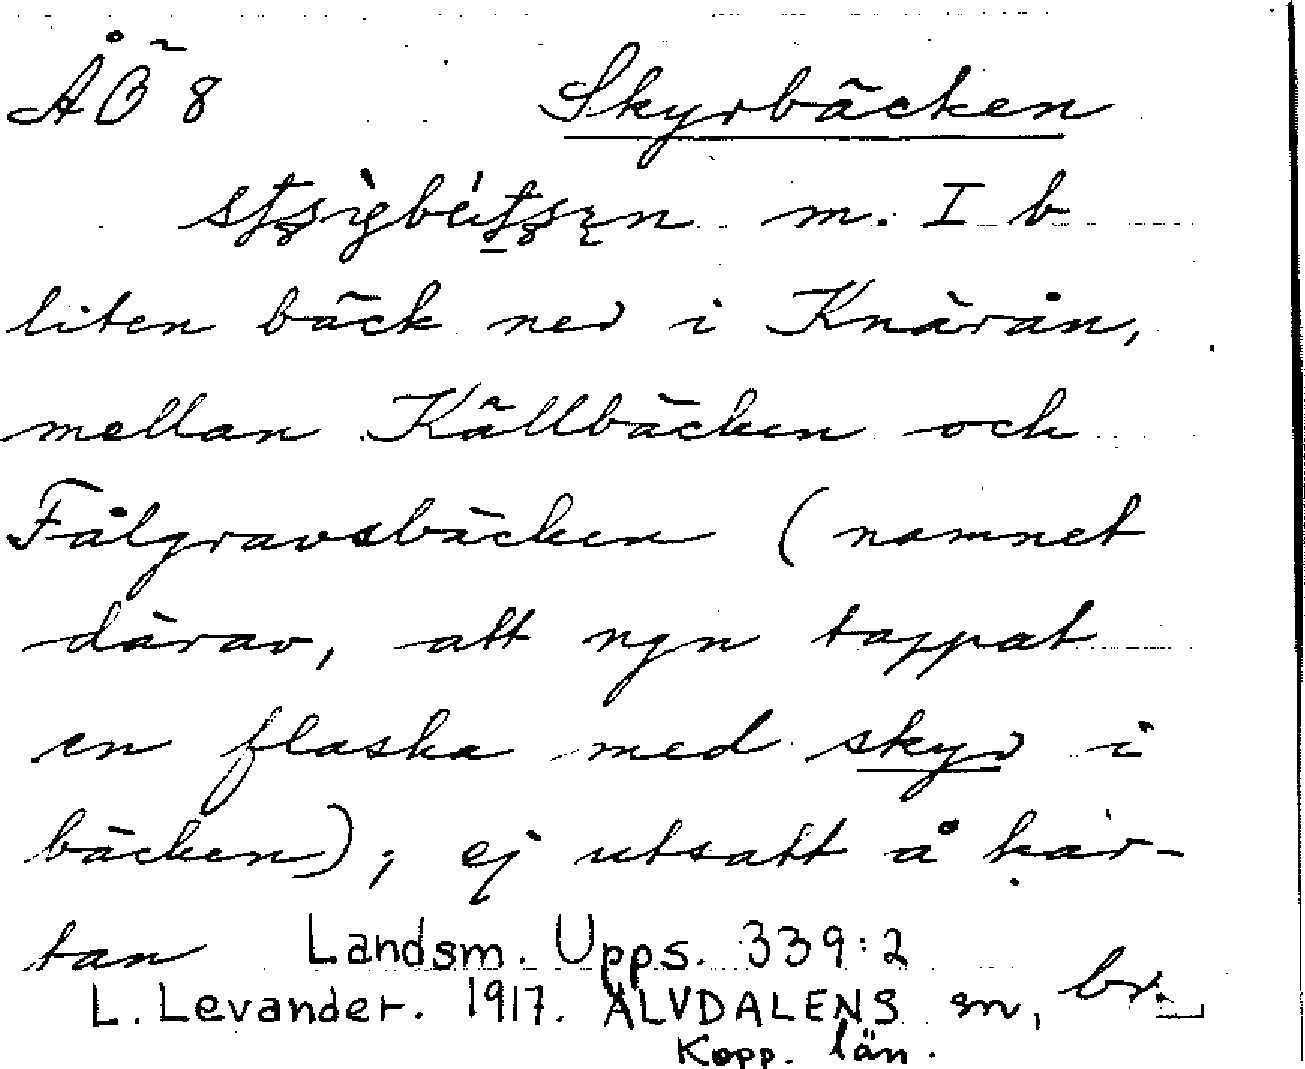 ÅÖ 8 Skyrbäcken
m. I b
liten bäck ner i Knärån,
mellan Källbäcken och
Fålgravsbäcken (namnet
därav, att ngn tappat
en flaska med skyr i
bäcken); ej utsatt å kar-
tan Landsm. Upps. 339:2
L. Levander. 1917. ÄLVDALENS sn, br.
Kopp. län.